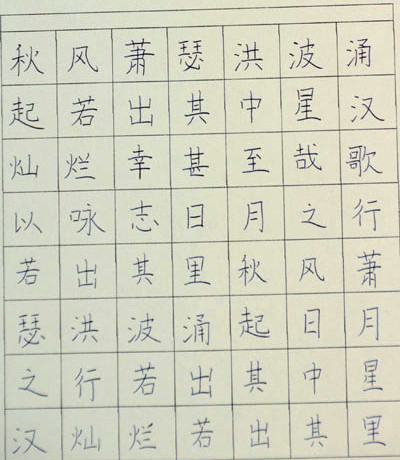 秋风萧瑟洪波涌
起若出其中星汉
灿烂幸甚至哉歌
以咏志日月之行
若出其里秋风萧
瑟洪波涌起日月
之行若出其中星
汉灿烂若出其里